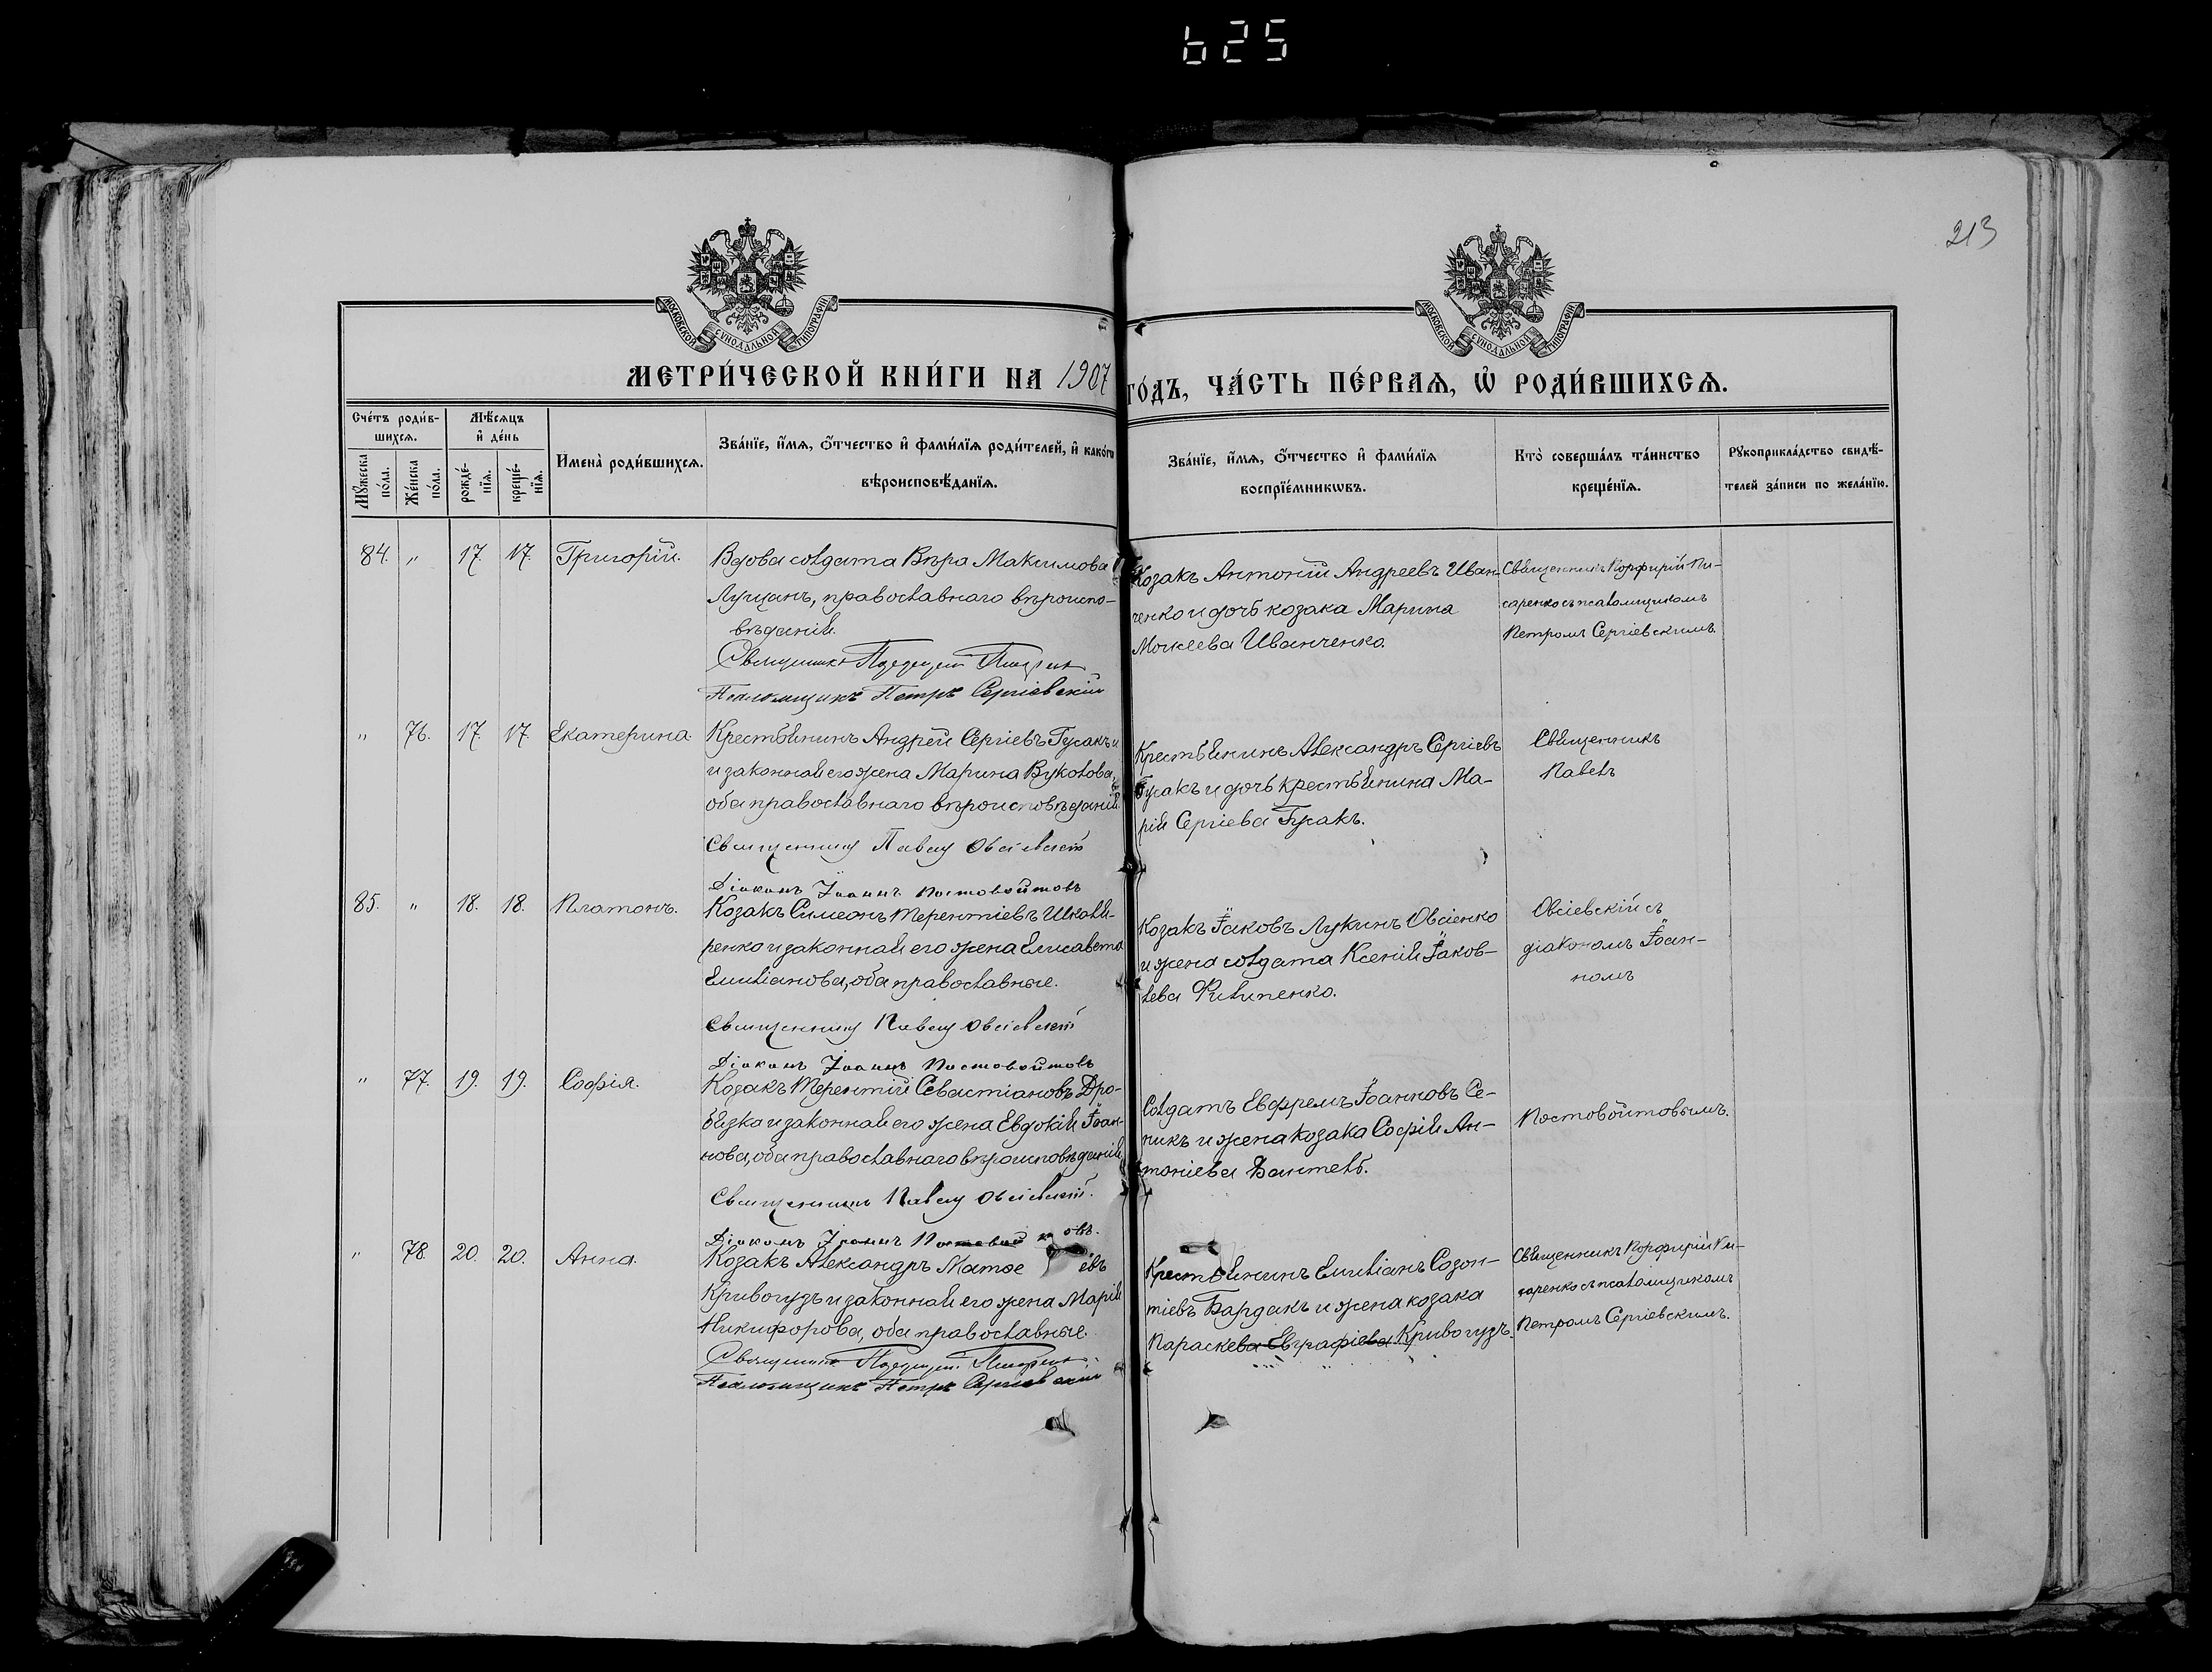 625
213
МОСКОВСКОЙ СѴНОДАЛЬНОЙ ТИПОГРАФІИ
МОСКОВСКОЙ СѴНОДАЛЬНОЙ ТИПОГРАФІИ
МЕТРИ́ЧЕСКОЙ КНИ́ГИ НА 1907 ГО́ДЪ, ЧА́СТЬ ПЕ́РВАѦ, Ѡ҆ РОДИ́ВШИХСѦ.
Сче́тъ роди́в-
шихсѧ.
Мꙋ́жеска
по́ла.
Же́нска
по́ла.
Мѣ́сѧцъ
и҆ де́нь
рожде́-
нїѧ.
креще́-
нїѧ.
И҆мена̀ роди́вшихсѧ.
Зва́нїе, и҆́мѧ, ѻ҆́тчество и҆ фами́лїѧ роди́телей, и҆ како́гѡ
вѣроисповѣ́данїѧ.
Зва́нїе, и҆́мѧ, ѻ҆́тчество и҆ фами́лїѧ
воспрїе́мникѡвъ.
Кто̀ соверша́лъ та́инство
креще́нїѧ.
Рꙋкоприкла́дство свидѣ́-
телей за́писи по жела́нїю.
84. „ 17. 17. Григорій.
Вдова солдата Вѣра Максимова
Лущанъ, православнаго вѣроиспо-
вѣданія.
Священникъ Порфирій Писаренко
Псаломщикъ Петръ Сергіевскій
Козакъ Антоній Андреевъ Иван-
ченко и дочь козака Марина
Мокеева Иванченко.
Священникъ Порфирій Пи-
саренко съ псаломщикомъ
Петромъ Сергіевскимъ.
„ 76. 17. 17. Екатерина.
Крестьянинъ Андрей Сергіевъ Гусакъ и
и законная его жена Марина Вуколова,
оба православнаго вѣроисповѣданія.
Священникъ Павелъ Овсіевскій
Діаконъ Іоаннъ Постовойтовъ
Крестьянинъ Александръ Сергіевъ
Гусакъ и дочь крестьянина Ма-
рія Сергіева Гусакъ.
Священникъ
Павелъ
85. „ 18. 18. Платонъ.
Козакъ Симеонъ Терентіевъ Школя-
ренко и законная его жена Елисавета
Емиліанова, оба православные.
Священникъ Павелъ Овсіевскій
Діаконъ Іоаннъ Постовойтовъ
Козакъ Іаковъ Лукинъ Овсіенко
и жена солдата Ксенія Іаков-
лева Филипенко.
Овсіевскій съ
діакономъ Іоан-
номъ
„ 77. 19. 19. Софія.
Козакъ Терентій Севастіановъ Дро-
бязко и законная его жена Евдокія Іоан-
нова, оба православнаго вѣроисповѣданія.
Священникъ Павелъ Овсіевскій.
Діаконъ Іоаннъ Постовой овъ.
Солдатъ Ефремъ Іоанновъ Се-
никъ и жена козака Софія Ан-
тоніева Бантель.
Постовойтовымъ.
„ 78 20. 20. Анна.
Козакъ Александръ Матѳеевъ
Кривогузъ и законная его жена Марія
Никифорова, оба православные.
Священникъ Порфирій Писаренко.
Псаломщикъ Петръ Сергіевскій
Крестьянинъ Емиліанъ Созон-
тіевъ Бардакъ и жена козака
Параскева Евграфіева Кривогузъ.
Священникъ Порфирій Пи-
саренко съ псаломщикомъ
Петромъ Сергіевскимъ.